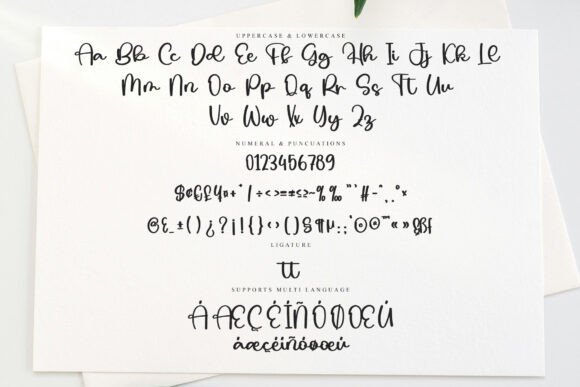 UPPERCASE & LOWERCASE
Aa Bb Cc Dd Ee Ff Gg Hh Ii Jj Kk Ll
Mm Nn Oo Pp Qq Rr Ss Tt Uu
Vv Ww Xx Yy Zz
NUMERAL & PUNCUATIONS
0123456789
$¢€£¥¤+*/÷<>=±≤≥~%‰"'#-^.,°×
@&_±()¿?¡!{}‹›()§¶µ:;'©®""«»§ßf
LIGATURE
tt
SUPPORTS MULTI LANGUAGE
ÁÆÇÉÍÑÓØŒÚ
áæçéíñóøœú